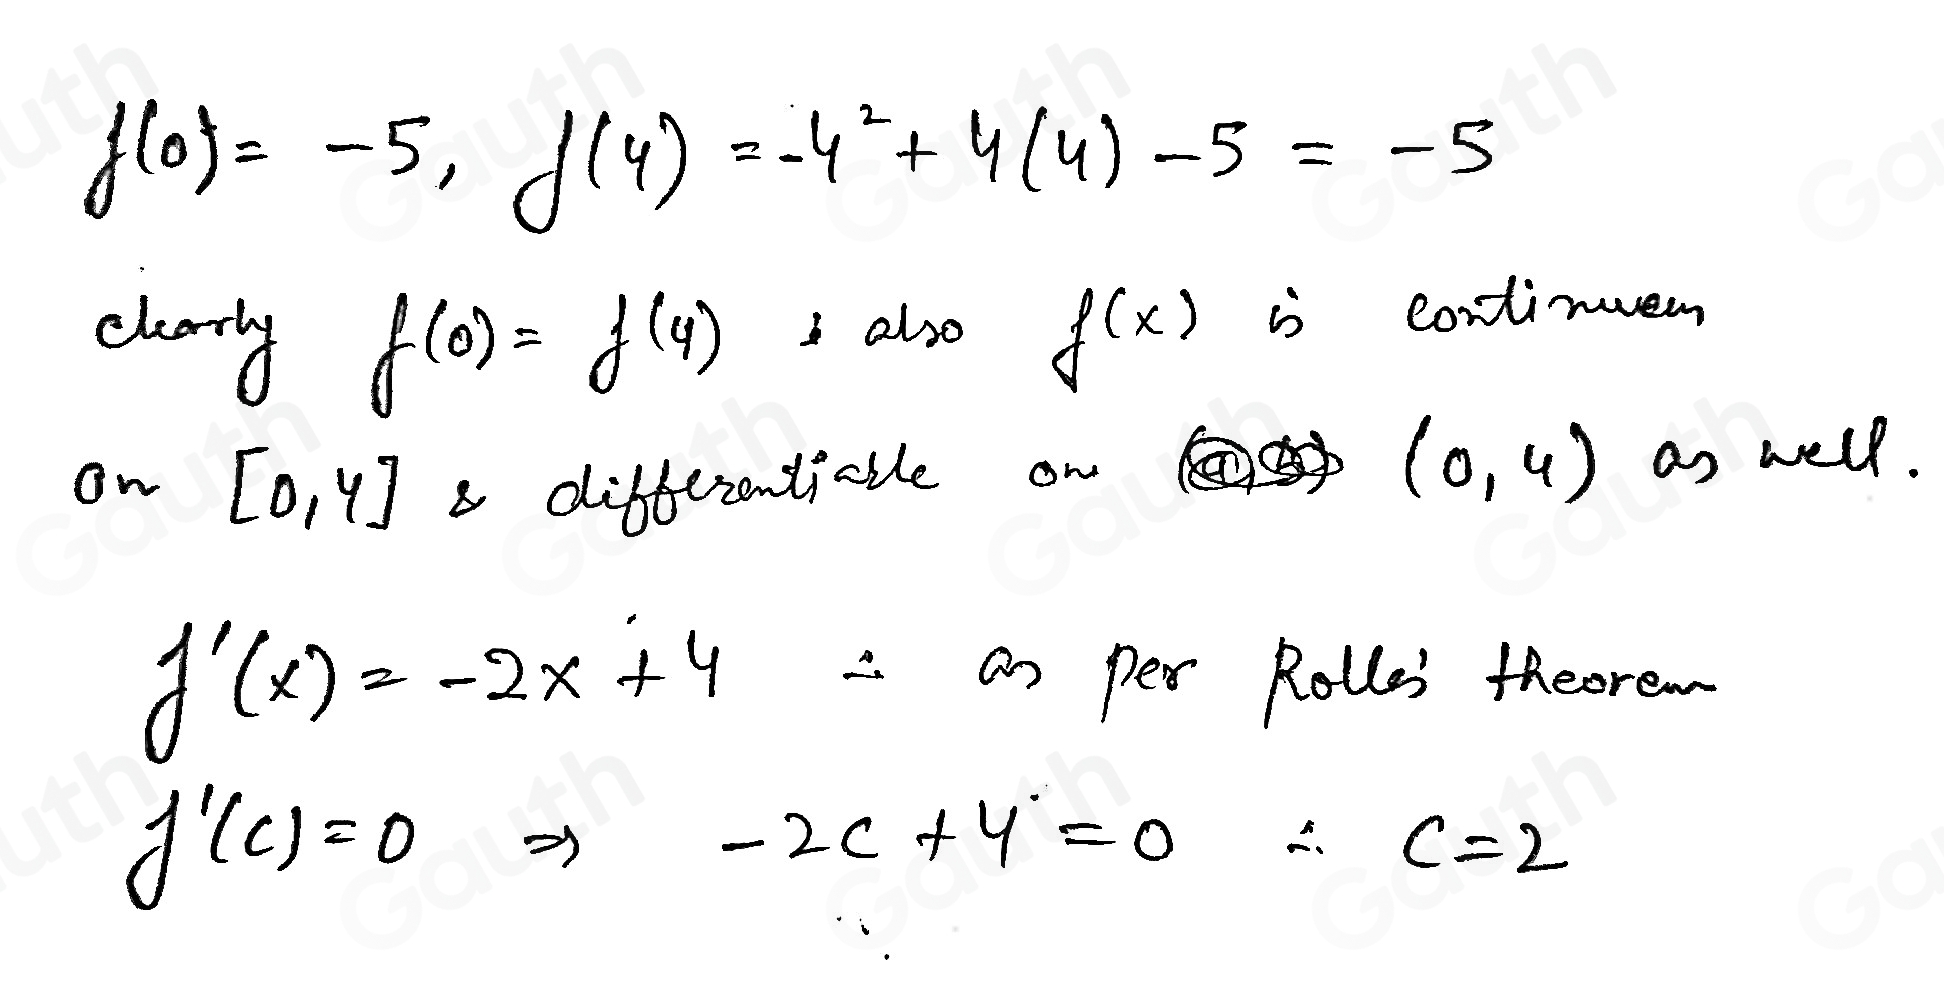 f(0) = -5, f(4) = -4² + 4(4) - 5 = -5
clearly f(0) = f(4) & also f(x) is continuous
on [0,4] & differentiable on (0,4) as well.
f'(x) = -2x + 4 ∴ as per Rolle's theorem
f'(c) = 0 ⇒ -2c + 4 = 0 ∴ c = 2